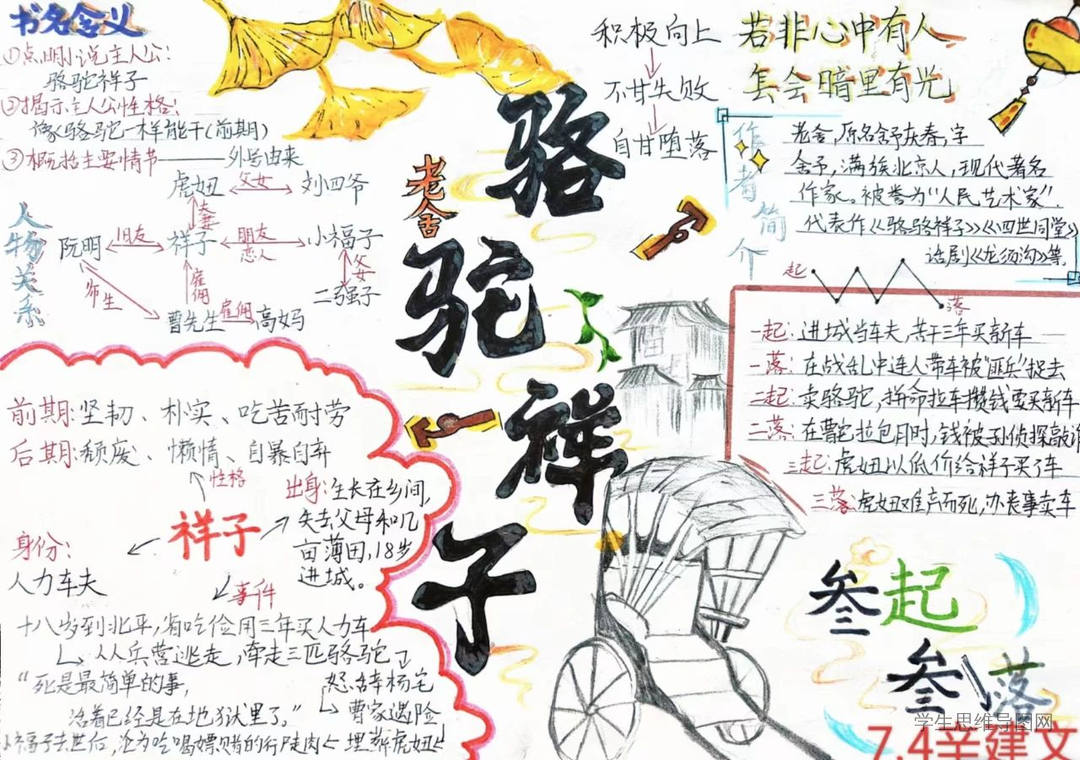 书名含义
①点明小说主人公:
骆驼祥子
②揭示主人公性格:
像骆驼一样能干(前期)
③概括主要情节——外号由来
人物关系
虎妞 父女 刘四爷
夫妻
阮明 旧友 祥子 朋友 恋人 小福子
师生
雇佣
父女
二强子
曹先生 雇佣 高妈
前期:坚韧、朴实、吃苦耐劳
后期:颓废、懒惰、自暴自弃
性格
祥子
出身:生长在乡间,
失去父母和几
亩薄田,18岁
进城。
身份:
人力车夫
事件
十八岁到北平,省吃俭用三年买人力车
从兵营逃走,牵走三匹骆驼
怒辞杨宅
曹家遇险
埋葬虎妞
小福子去世后,沦为吃喝嫖赌的行尸走肉
“死是最简单的事,
活着已经是在地狱里了。”
老舍
骆驼祥子
积极向上
不甘失败
自甘堕落
若非心中有人
怎会暗里有光
作者简介
老舍,原名舒庆春,字
舍予,满族北京人,现代著名
作家。被誉为“人民艺术家”.
代表作《骆驼祥子》《四世同堂》
话剧《龙须沟》等.
起
落
一起:进城当车夫,苦干三年买新车
一落:在战乱中连人带车被“匪兵”捉去
二起:卖骆驼,拼命拉车攒钱要买新车
二落:在曹宅拉包月时,钱被孙侦探敲诈
三起:虎妞以低价给祥子买了车
三落:虎妞难产而死,办丧事卖车
叁起
叁落
学生思维导图网
7.4辛建文